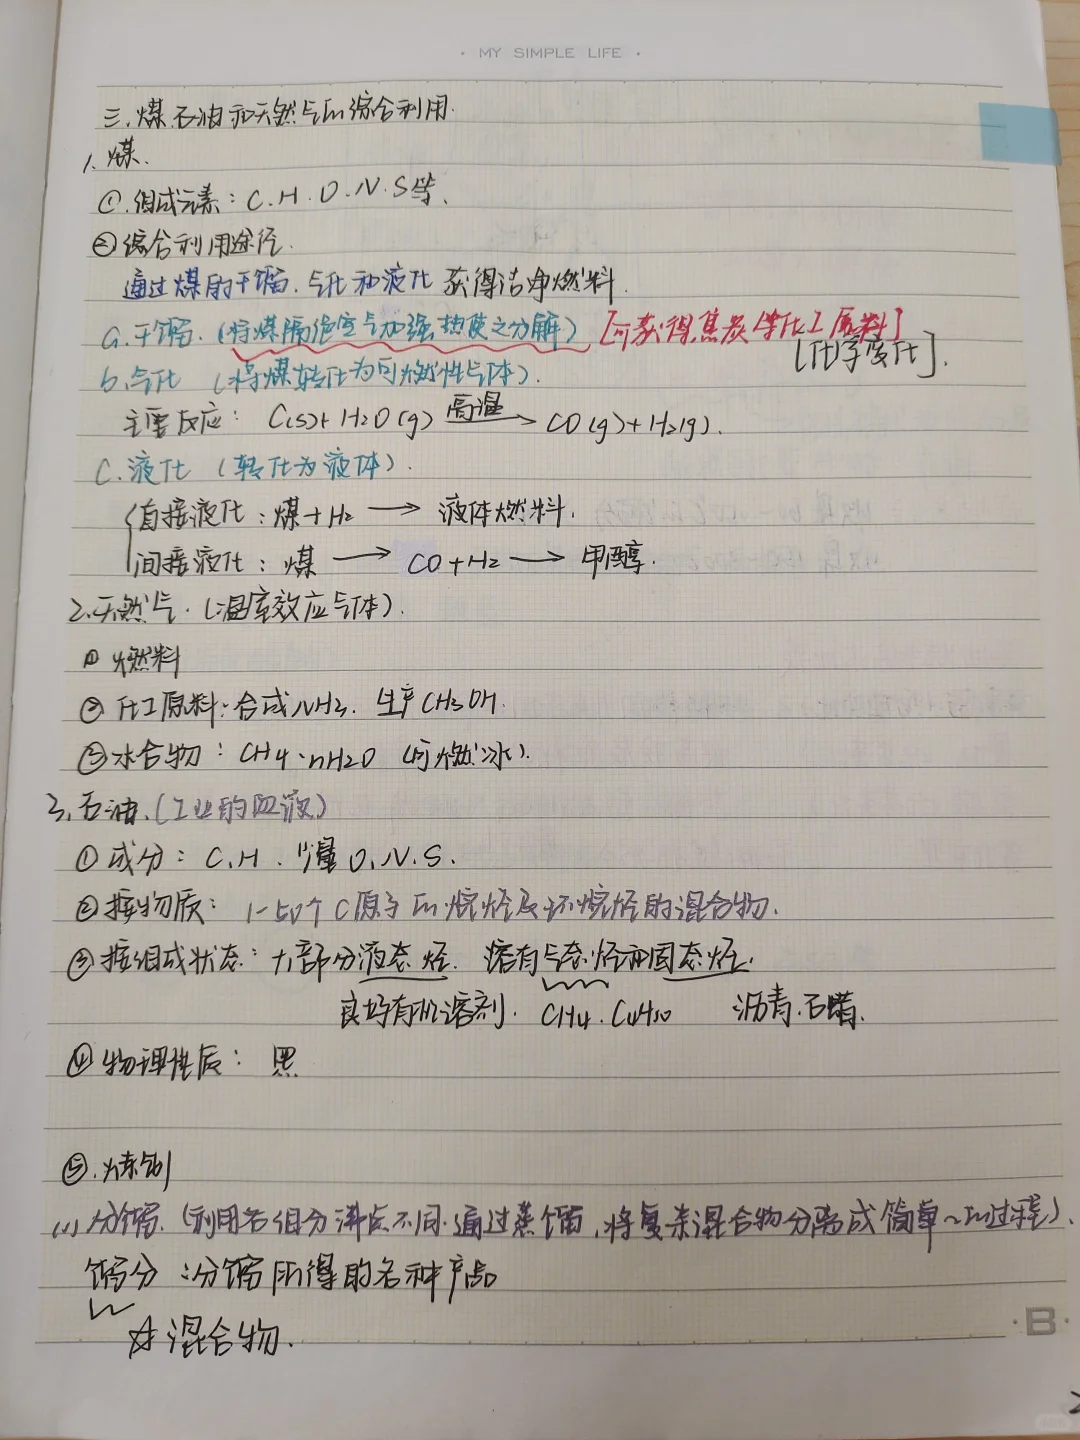 · MY SIMPLE LIFE ·
三.煤.石油和天然气的综合利用.
1.煤.
①.组成元素：C.H.O.N.S等.
②综合利用途径.
通过煤的干馏.气化和液化 获得洁净燃料.
a.干馏.(将煤隔绝空气加强热使之分解) [可获得焦炭等化工原料]
[化学变化].
b.气化 (将煤转化为可燃性气体).
主要反应: C(s)+H2O(g) 高温→ CO(g)+H2(g).
C.液化 (转化为液体).
直接液化:煤+H2 → 液体燃料.
间接液化:煤 → CO+H2 → 甲醇.
2.天然气.(温室效应气体).
① 燃料
② 化工原料:合成NH3. 生产CH3OH.
③水合物:CH4·nH2O (可燃冰).
3.石油.(工业的血液)
①成分: C.H. 少量O.N.S.
②按物质: 1-50个C原子的烷烃及环烷烃的混合物.
③按组成状态:大部分液态烃. 溶有气态烃和固态烃.
良好有机溶剂. CH4.C4H10 沥青.石蜡.
④物理性质: 黑
⑤.炼制
(1)分馏.(利用各组分沸点不同.通过蒸馏,将复杂混合物分离成简单~的过程).
馏分:分馏所得的各种产品
☆混合物.
·B·